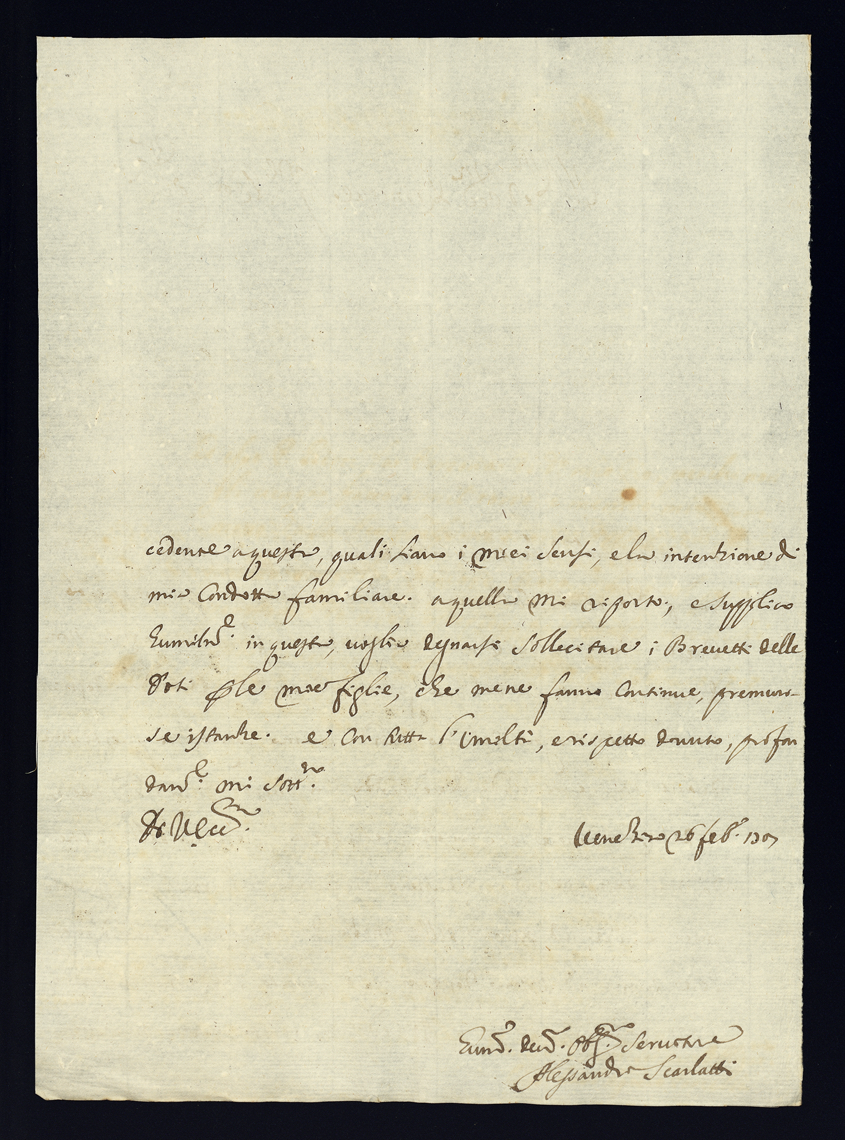 cedente a questa, quali siano i miei sensi, e la intenzione di
mia Condotta familiare. a quella mi riporto, e supplico
humilm.e in questa, voglia degnarsi sollecitare i Brevetti delle
Doti p le mie figlie, che mene fanno Continue, premuro-
se istanze. e Con tutta l'humiltà, e rispetto dovuto, profon
dam.e mi
Di V. Ecc.
Venezia 26 feb.o 1707
Hum. Dev. Obl. Servitore
Alessandro Scarlatti